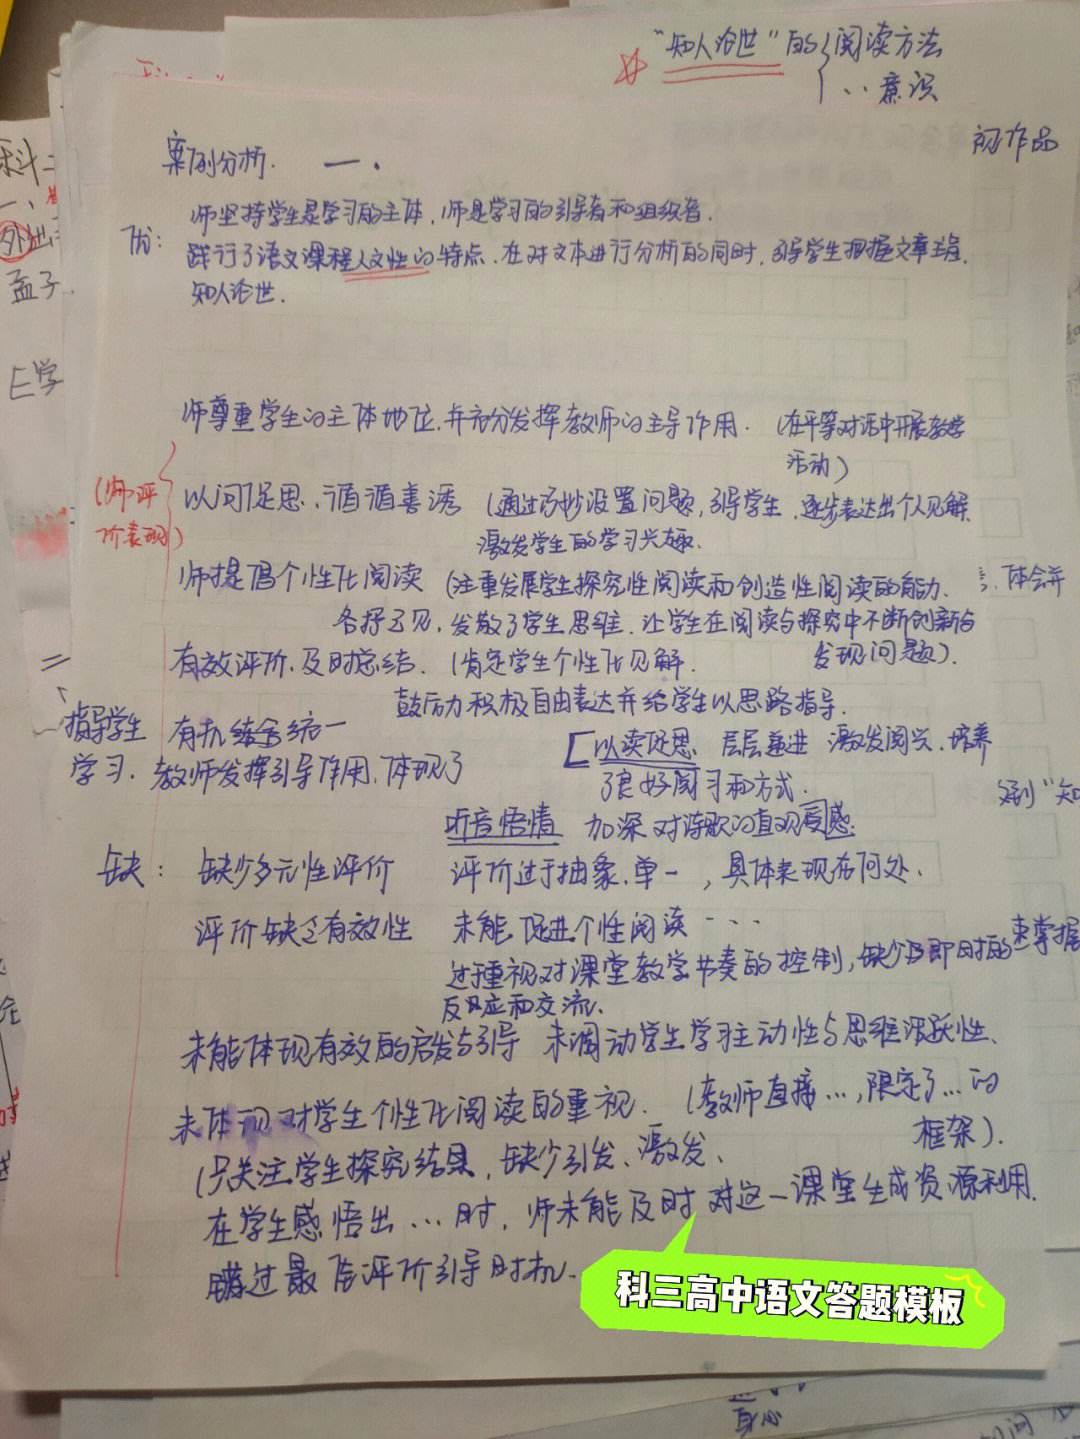 "知人论世"的 阅读方法
.. 意识
初作品
案例分析. 一.
师坚持学生是学习的主体,师是学习的引导者和组织者.
优:
践行了语文课程人文性的特点.在对文本进行分析的同时,引导学生把握文章
知人论世.
师尊重学生的主体地位,并充分发挥教师的主导作用. (在平等对话中开展教学
活动)
(师评
价表现)
以问促思、循循善诱 (通过巧妙设置问题,引导学生,逐步表达出个人见解
激发学生的学习兴趣.
师提倡个性化阅读 (注重发展学生探究性阅读和创造性阅读的能力.
体会并
各抒己见,发散了学生思维.让学生在阅读与探究中不断创新与
发现问题).
有效评价、及时总结. (肯定学生个性化见解.
鼓励积极自由表达并给学生以思路指导.
指导学生 有机结合统一
学习. 教师发挥引导作用,体现了
[以读促思 层层递进 激发阅兴.培养
了良好阅习和方式.
"知
听音悟情 加深对诗歌的直观
缺: 缺少多元性评价 评价过于抽象.单一,具体表现在何处.
评价缺乏有效性 未能促进个性阅读 ...
过重视对课堂教学节奏的控制,缺少及即时的
掌握
反应和交流.
未能体现有效的启发与引导 未调动学生学习主动性与思维活跃性、
未体现对学生个性化阅读的重视. (教师直接...,限定了...的
框架).
(只关注学生探究结果,缺少引发、激发、
在学生感悟出...时,师未能及时对这一课堂生成资源利用.
错过最佳评价引导时机.
科三高中语文答题模板
科二
一、
孟子
学
身心
问